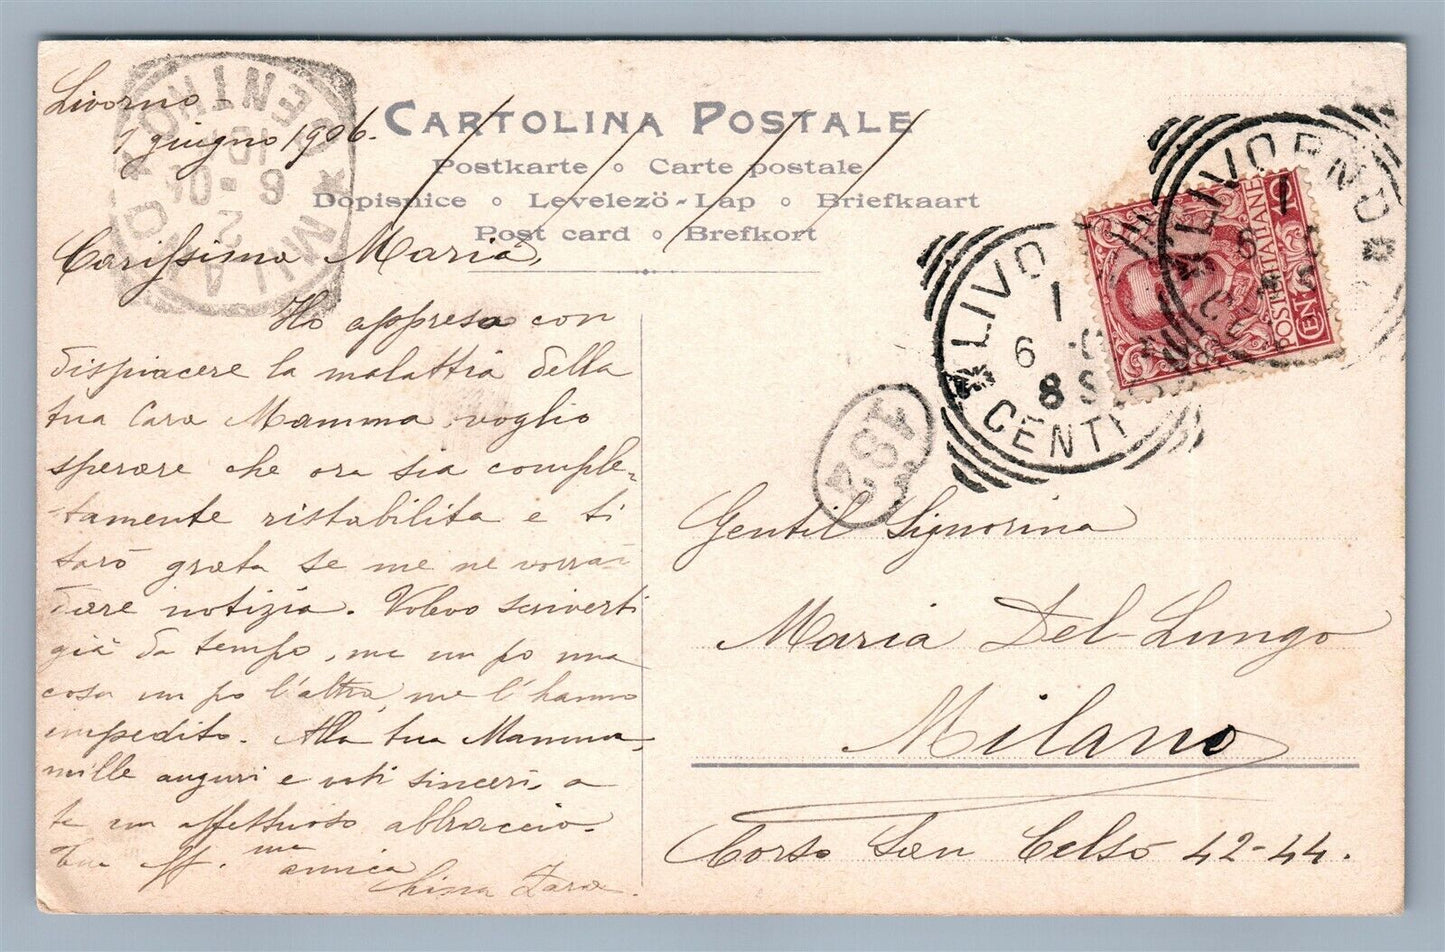 Livorno
1 giugno 1906.
CARTOLINA POSTALE
Postkarte ○ Carte postale
Dopisnice ○ Levelezö-Lap ○ Briefkaart
Post card ○ Brefkort
MILANO
CENTRO
2
6-06
Carissima Maria,
Ho appreso con
dispiacere la malattia della
tua Cara Mamma, voglio
sperare che ora sia comple-
tamente ristabilita e ti
sarò grata se me ne vorrai
dare notizia. Volevo scriverti
già da tempo, ma un po una
cosa un po l'altra, me l'hanno
impedito. Alla tua Mamma,
mille auguri e voti sinceri, a
te un affettuoso abbraccio.
Tua aff.ma amica
LIVO
1
6
8 S
CENT
LIVORNO
1
6
POSTE ITALIANE
CEN
182
Gentil Signorina
Maria Del-Lungo
Milano
Corso San Celso 42-44.